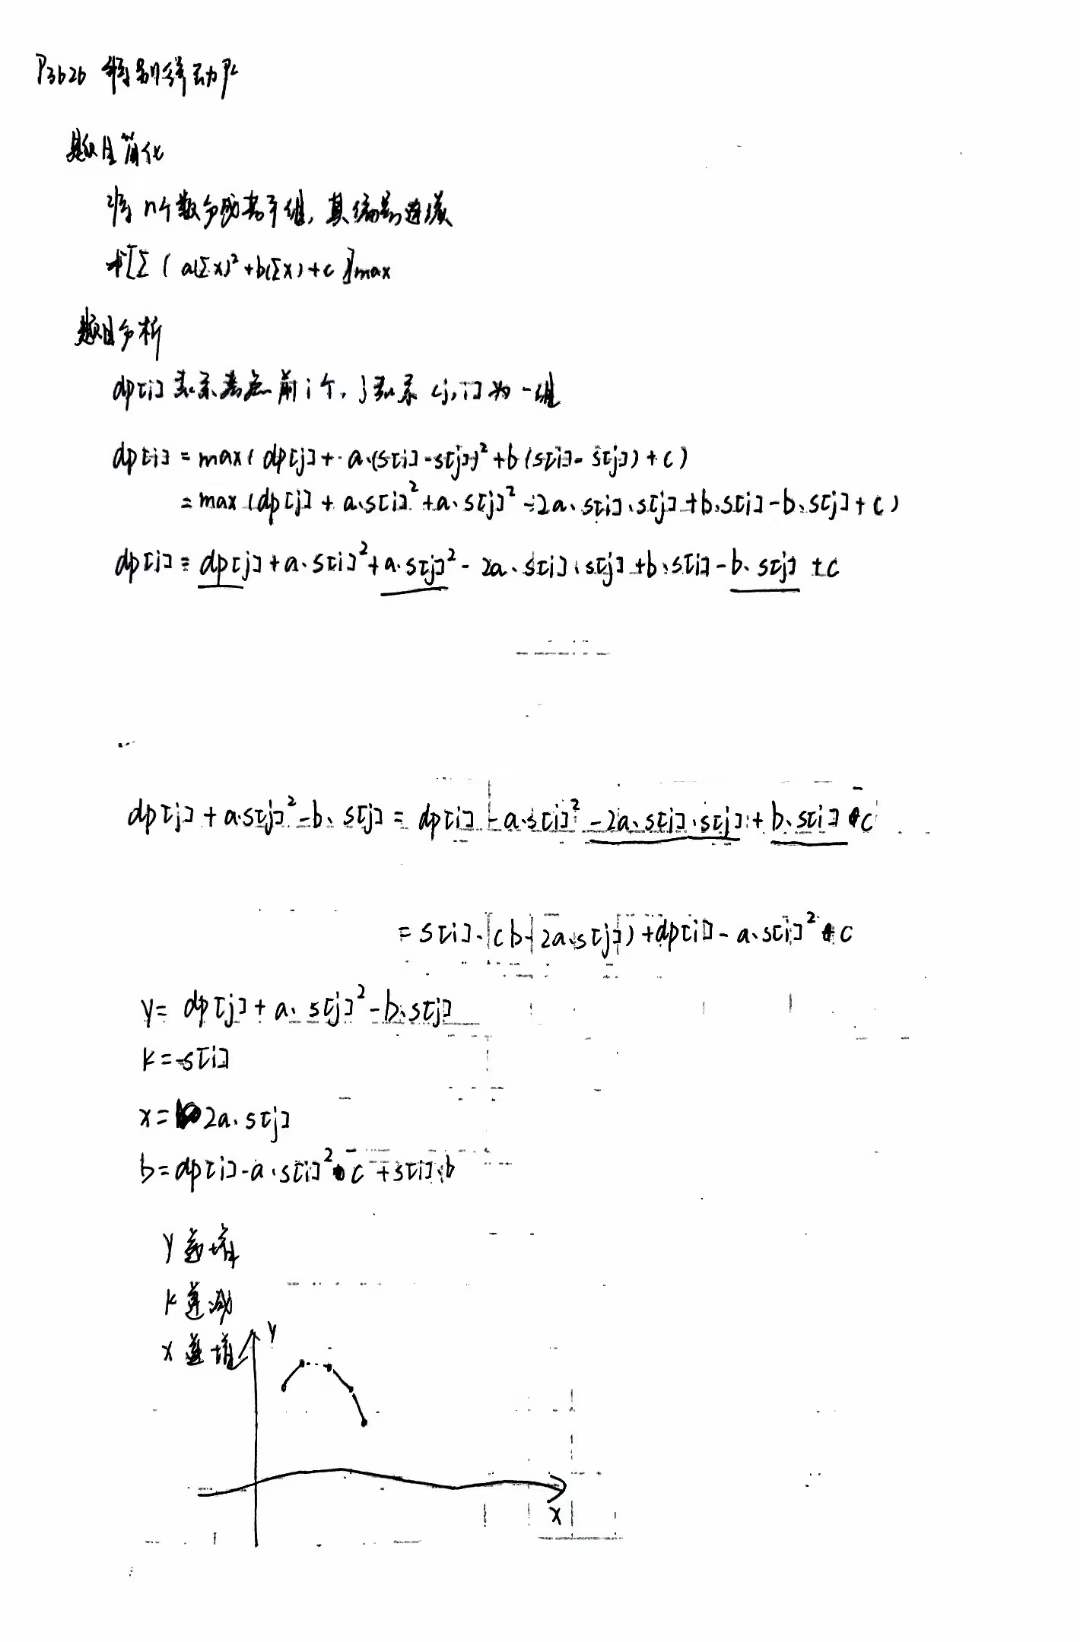 P3626 特别行动队
题目简化
将n个数分成若干组,其编号连续
求[Σ(a(Σx)²+b(Σx)+c]max
题目分析
dp[i]表示考虑前i个,j表示<j,i]为一组
dp[i] = max(dp[j]+a·(s[i]-s[j])²+b(s[i]-s[j])+c)
= max(dp[j]+a·s[i]²+a·s[j]²-2a·s[i]·s[j]+b·s[i]-b·s[j]+c)
dp[i] = dp[j]+a·s[i]²+a·s[j]²-2a·s[i]·s[j]+b·s[i]-b·s[j]+c
dp[j]+a·s[j]²-b·s[j] = dp[i]-a·s[i]²-2a·s[i]·s[j]+b·s[i] c
= s[i]·(b-2a·s[j])+dp[i]-a·s[i]² c
y= dp[j]+a·s[j]²-b·s[j]
k=-s[i]
x= 2a·s[j]
b=dp[i]-a·s[i]²-c+s[i]·b
y递增
k递减
x递增
y
x